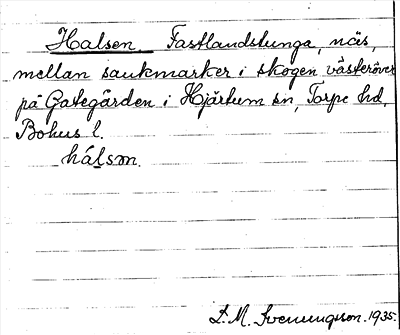 Halsen. Fastlandstunga, näs,
mellan sankmarker i skogen västeröver
på Gategården i Hjärtum sn, Torpe hd,
Bohus l.
hálsm.
L. M. Svenungsson. 1935.